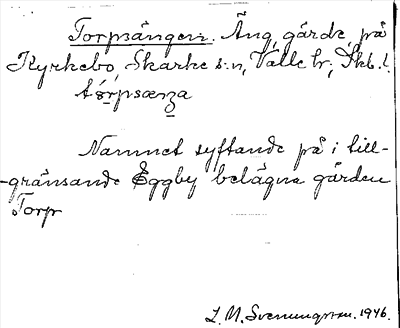 Torpsängen. Äng, gärde, på
Kyrkebo, Skärke s:n, Valle hr, Skb. l.
tó̱rpsæŋa
Namnet syftande på i till-
-gränsande Eggby belägna gården
Torp
L. M. Svenungsson. 1946.